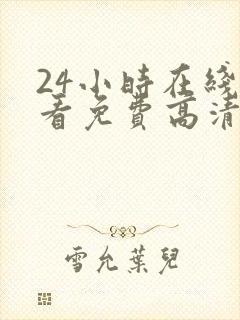 24小時在綫
看免費高清
雪允葉兒